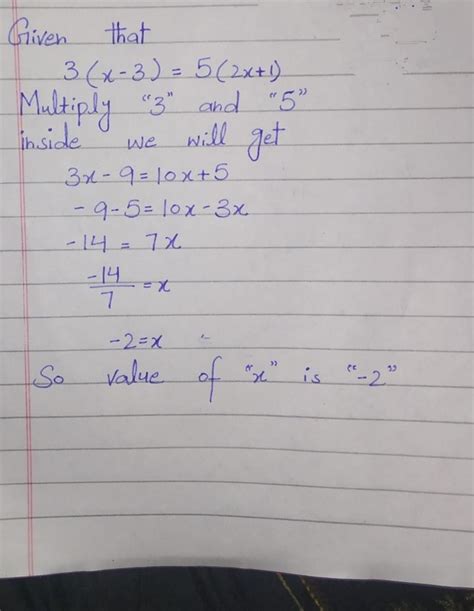 Given that
3(x-3) = 5(2x+1)
Multiply "3" and "5"
inside we will get
3x - 9 = 10x + 5
- 9 - 5 = 10x - 3x
-14 = 7x
-14/7 = x
-2 = x
So value of "x" is "-2"